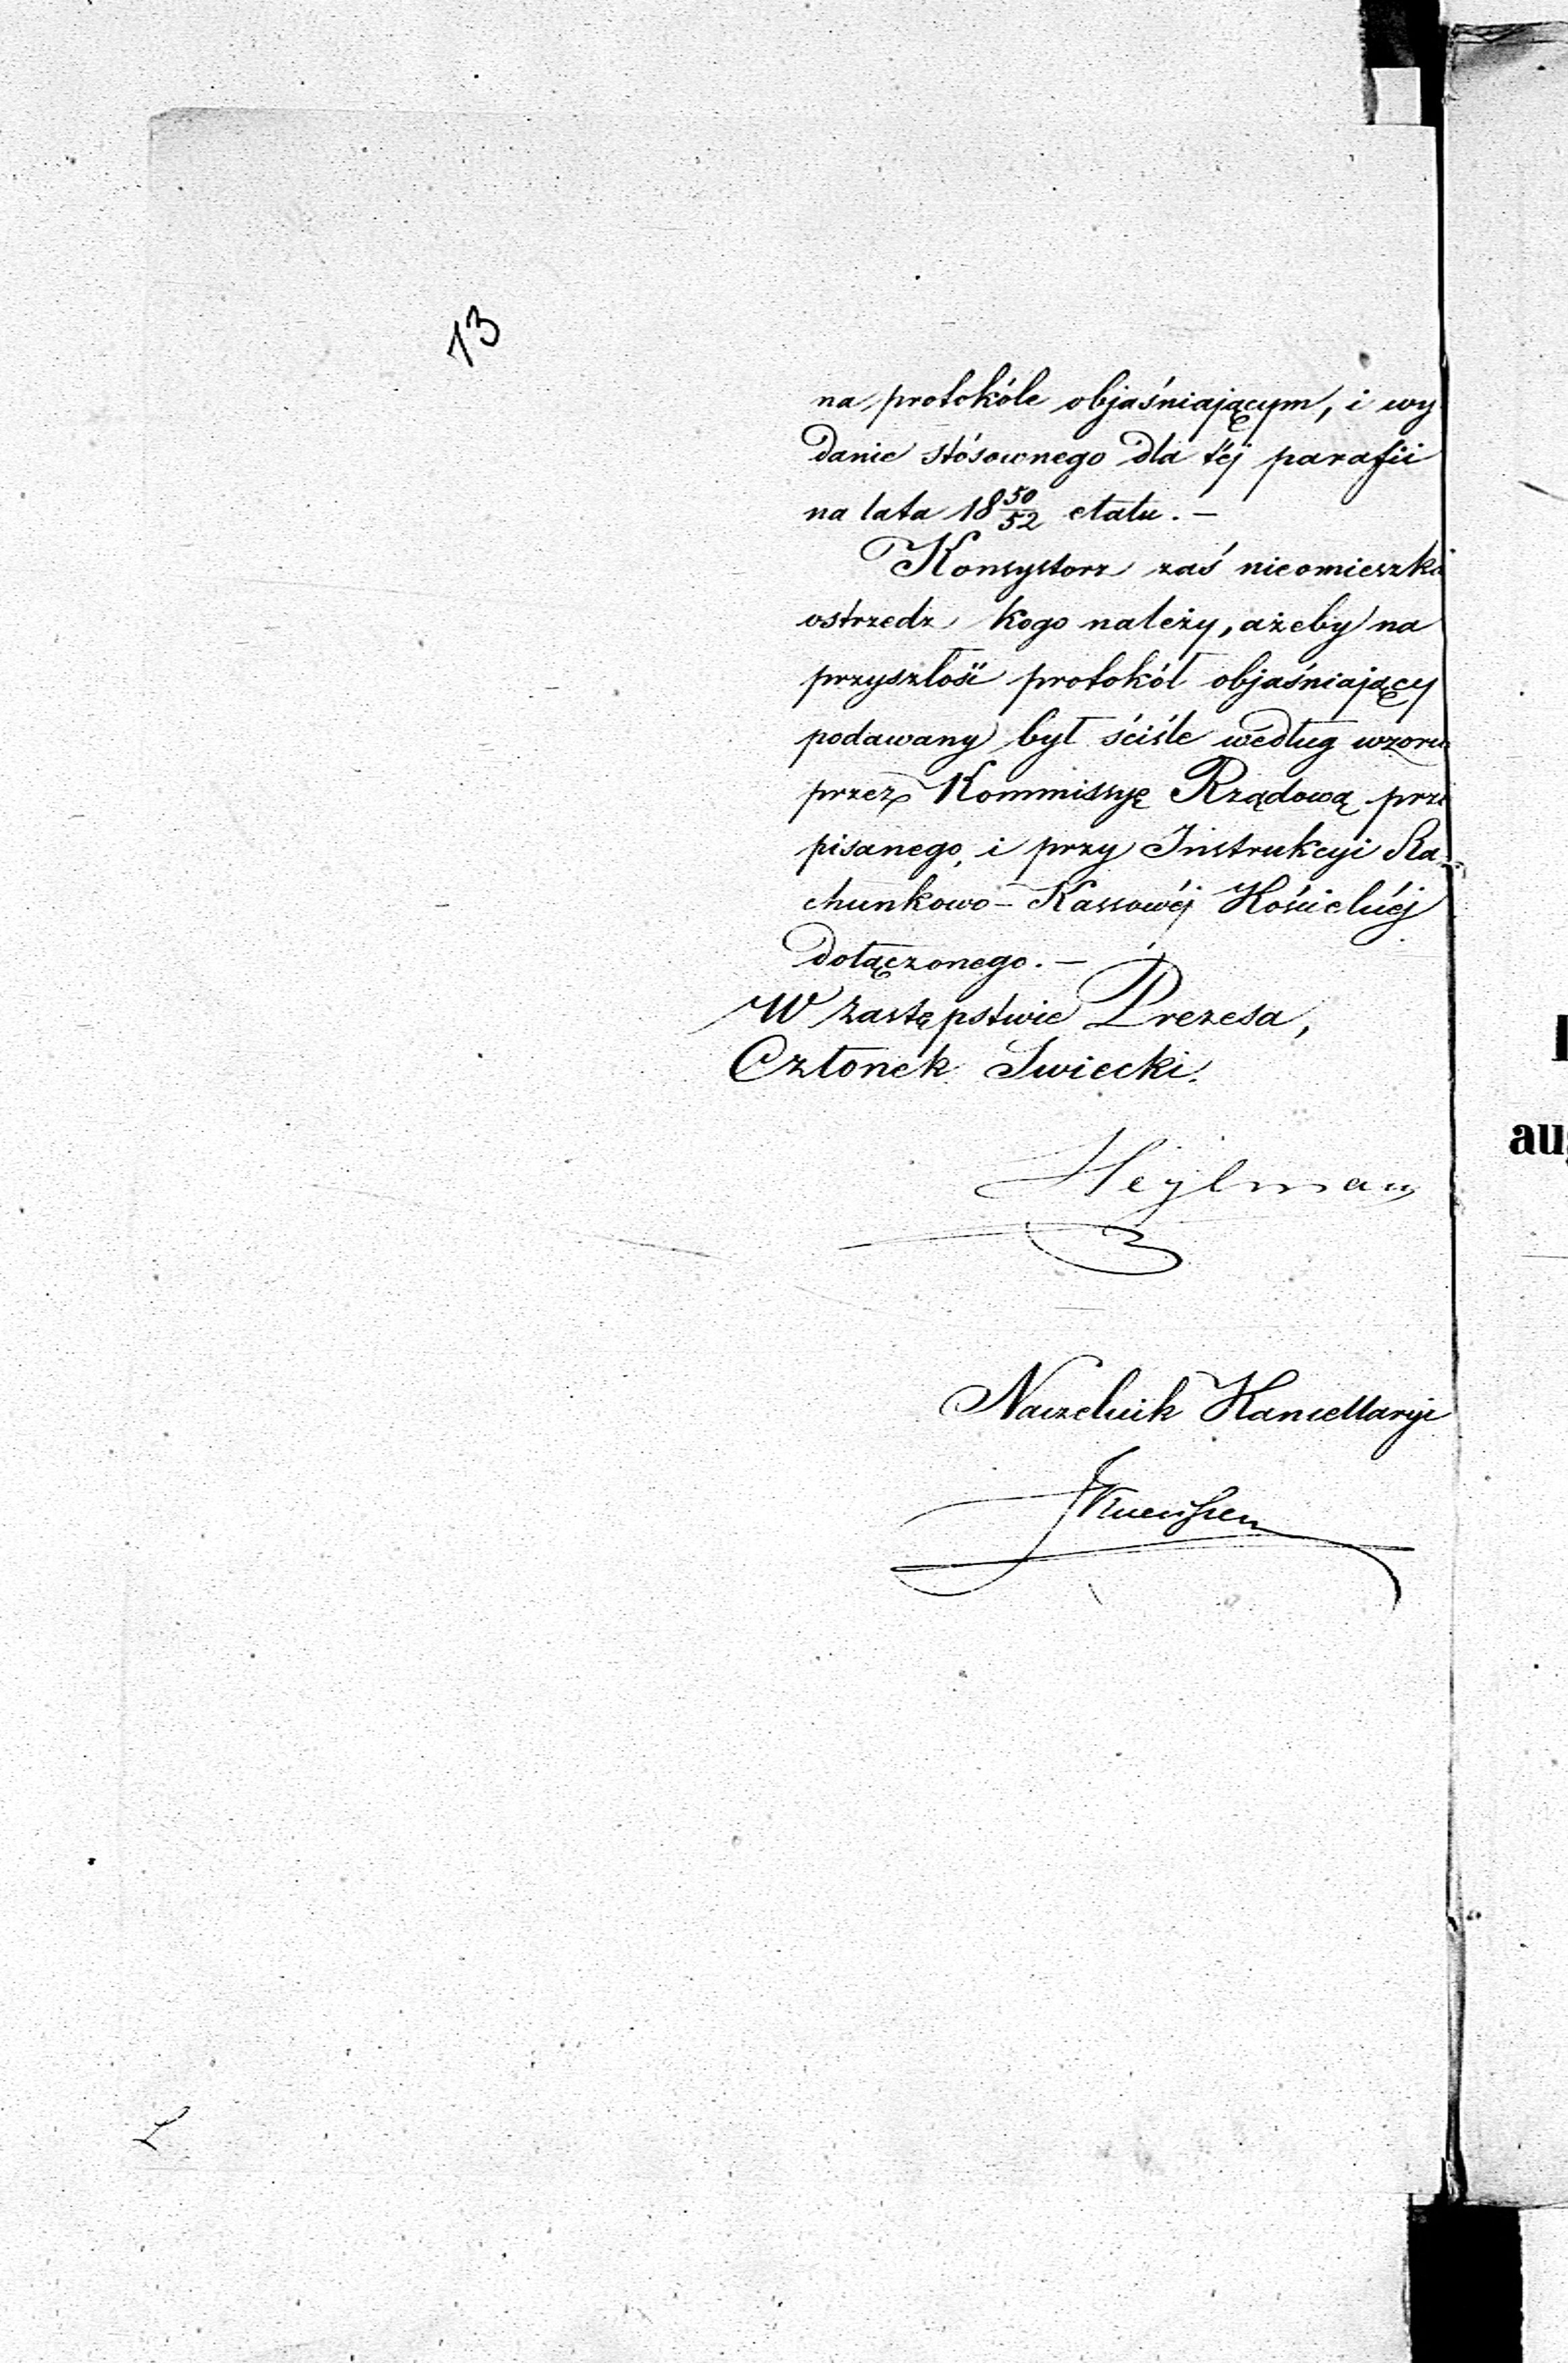 13
na protokóle objaśniającym, i wy
danie stósownego dla téj parafii
na lata 18 50/52 etatu. —
Konsystorz zaś nieomieszka
ostrzedz kogo należy, ażeby na
przyszłość protokół objaśniający
podawany był ściśle według wzoru
przez Kommissyę Rządową prze
pisanego, i przy Instrukcyi Ra-
chunkowo-Kassowéj Kościelnéj
dołączonego. —
W zastępstwie Prezesa,
Członek Swiecki.
Heylman
Naczelnik Kancellaryi
au